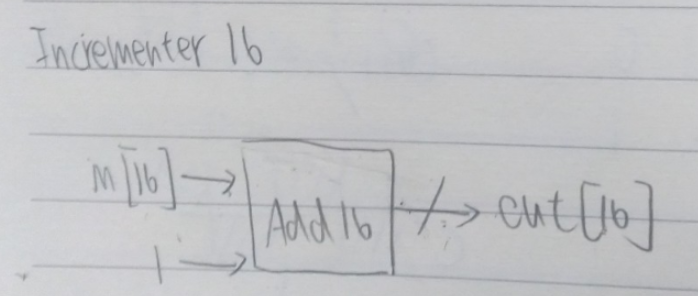 Incrementer 16
in[16]
Add 16
out[16]
1